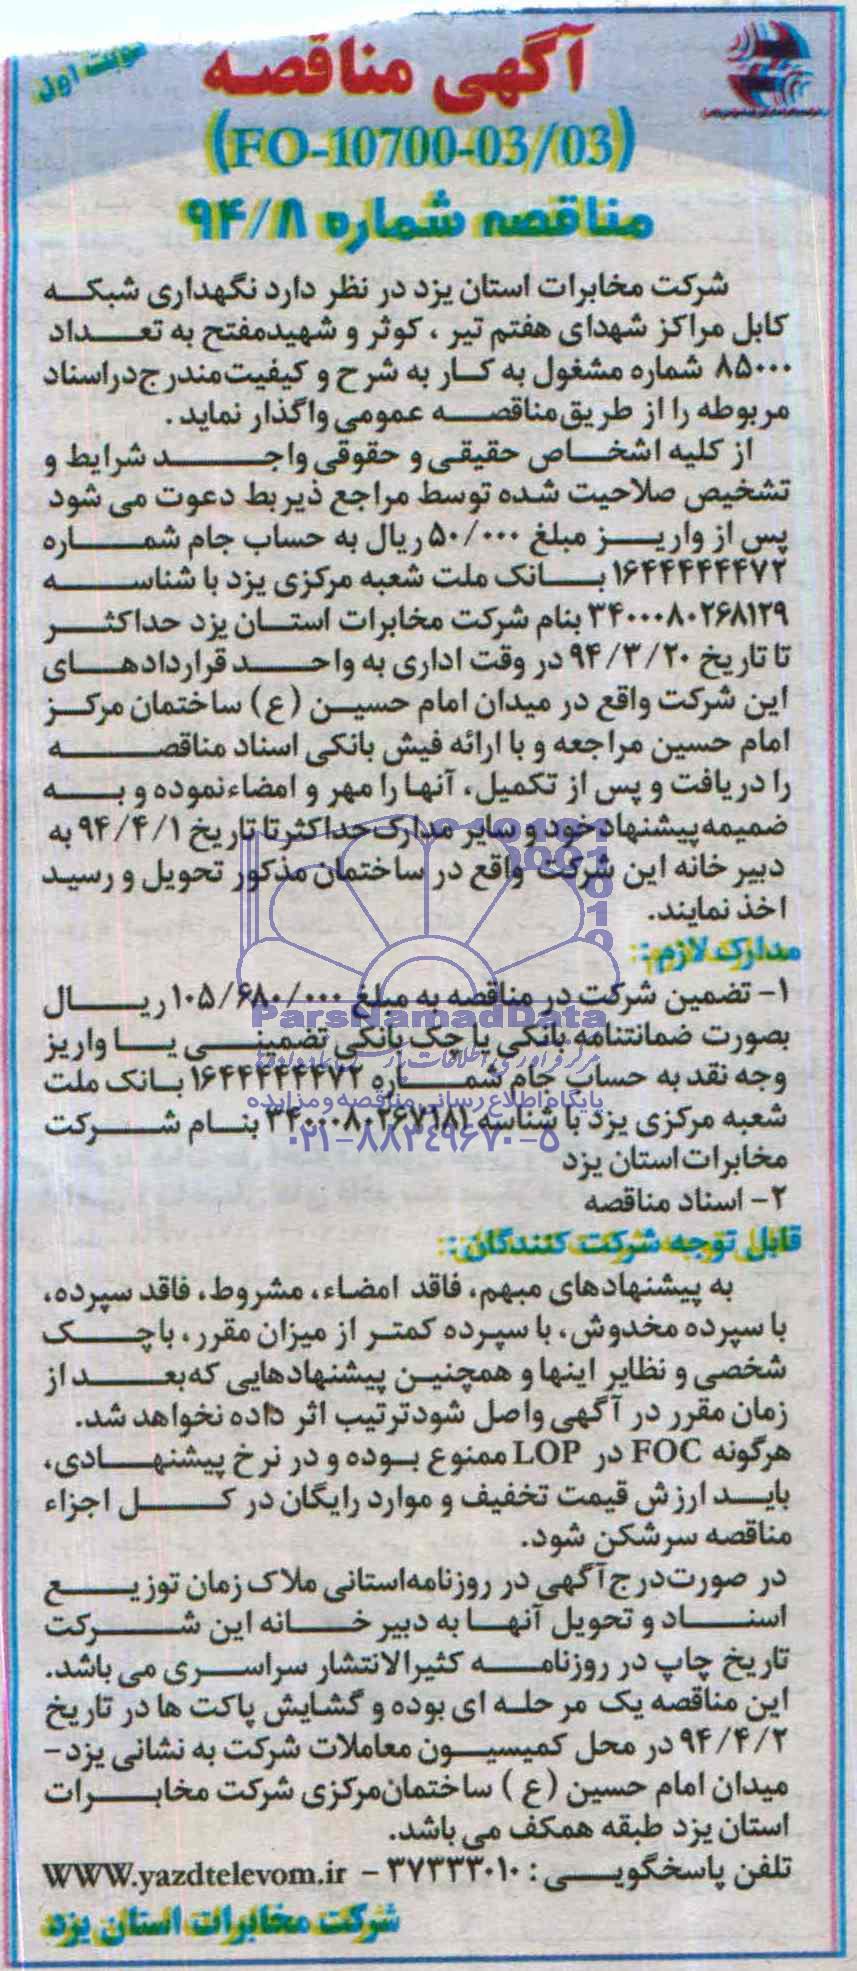 نوبت اول
آگهی مناقصه
(FO-10700-03//03)
مناقصه شماره ۹۴/۸
شرکت مخابرات استان یزد در نظر دارد نگهداری شبکه
کابل مراکز شهدای هفتم تیر ، کوثر و شهیدمفتح به تعداد
۸۵۰۰۰ شماره مشغول به کار به شرح و کیفیت‌مندرج‌دراسناد
مربوطه را از طریق‌مناقصه عمومی واگذار نماید .
از کلیه اشخاص حقیقی و حقوقی واجد شرایط و
تشخیص صلاحیت شده توسط مراجع ذیربط دعوت می شود
پس از واریز مبلغ ۵۰/۰۰۰ ریال به حساب جام شماره
۱۶۴۴۴۴۴۴۷۲ بانک ملت شعبه مرکزی یزد با شناسه
۳۴۰۰۰۸۰۲۶۸۱۲۹ بنام شرکت مخابرات استان یزد حداکثر
تا تاریخ ۹۴/۳/۲۰ در وقت اداری به واحد قراردادهای
این شرکت واقع در میدان امام حسین (ع) ساختمان مرکز
امام حسین مراجعه و با ارائه فیش بانکی اسناد مناقصه
را دریافت و پس از تکمیل، آنها را مهر و امضاءنموده و به
ضمیمه پیشنهاد خود و سایر مدارک‌حداکثرتا تاریخ ۹۴/۴/۱ به
دبیر خانه این شرکت واقع در ساختمان مذکور تحویل و رسید
اخذ نمایند.
مدارک لازم:
۱- تضمین شرکت در مناقصه به مبلغ ۱۰۵/۶۸۰/۰۰۰ ریال
بصورت ضمانتنامه بانکی یا چک بانکی تضمینی یا واریز
وجه نقد به حساب جام شماره ۱۶۴۴۴۴۴۴۷۲ بانک ملت
شعبه مرکزی یزد با شناسه ۳۴۰۰۰۸۰۲۶۷۱۸۱ بنام شرکت
مخابرات‌استان یزد
۲- اسناد مناقصه
قابل توجه شرکت کنندگان:
به پیشنهادهای مبهم، فاقد امضاء، مشروط، فاقد سپرده،
با سپرده مخدوش، با سپرده کمتر از میزان مقرر، باچک
شخصی و نظایر اینها و همچنین پیشنهادهایی که‌بعد از
زمان مقرر در آگهی واصل شودترتیب اثر داده نخواهد شد.
هرگونه FOC در LOP ممنوع بوده و در نرخ پیشنهادی،
باید ارزش قیمت تخفیف و موارد رایگان در کل اجزاء
مناقصه سرشکن شود.
در صورت‌درج‌آگهی در روزنامه‌استانی ملاک زمان توزیع
اسناد و تحویل آنها به دبیر خانه این شرکت
تاریخ چاپ در روزنامه کثیرالانتشار سراسری می باشد.
این مناقصه یک مرحله ای بوده و گشایش پاکت ها در تاریخ
۹۴/۴/۲ در محل کمیسیون معاملات شرکت به نشانی یزد -
میدان امام حسین (ع) ساختمان‌مرکزی شرکت مخابرات
استان یزد طبقه همکف می باشد.
تلفن پاسخگویی : ۳۷۳۳۳۰۱۰ - WWW.yazdtelevom.ir
شرکت مخابرات استان یزد
ParsNamadData
پایگاه اطلاع رسانی مناقصه و مزایده
۰۲۱-۸۸۳۴۹۶۷۰-۵